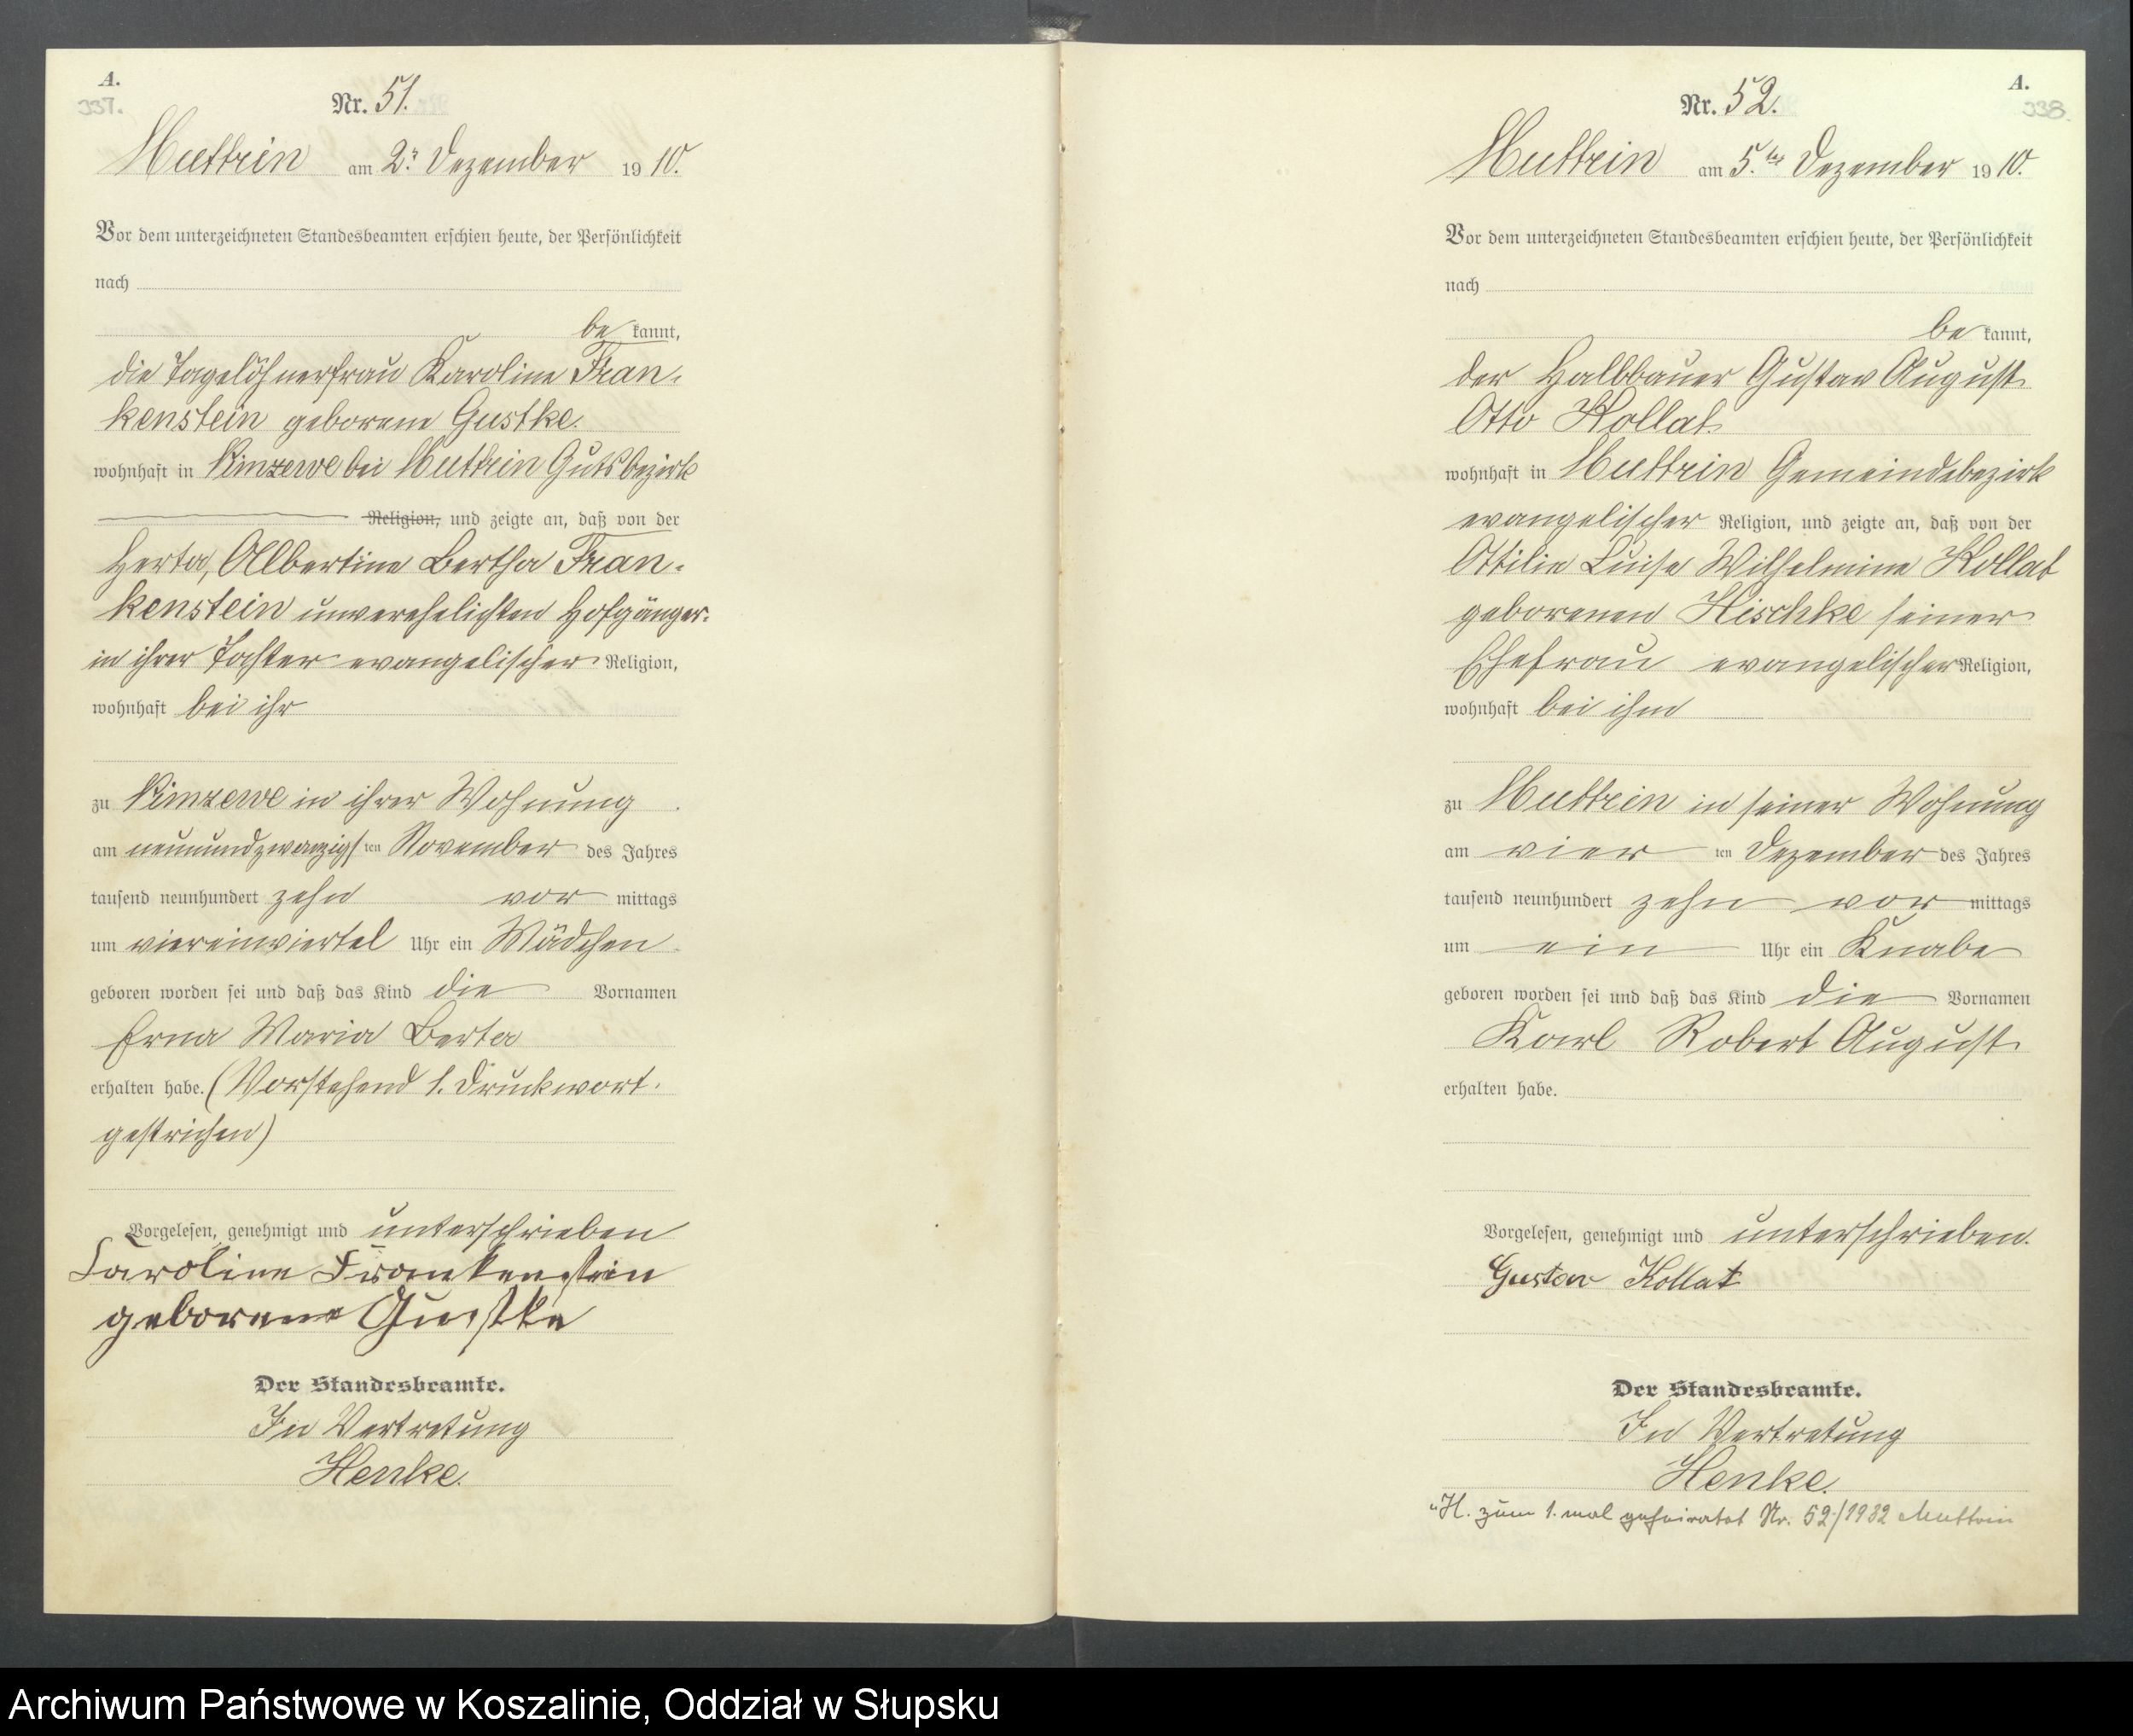 A.
337.
Nr. 51.
Muttrin am 2. Dezember 1910.
Vor dem unterzeichneten Standesbeamten erschien heute, der Persönlichkeit
nach
be kannt,
die Tagelöhnerfrau Karoline Fran-
kenstein geborene Gustke.
wohnhaft in Kimzewe bei Muttrin Gutsbezirk
Religion, und zeigte an, daß von der
Herta, Albertine Bertha Fran-
kenstein unverehelichten Hofgänger-
in ihrer Tochter evangelischer Religion,
wohnhaft bei ihr
zu Kimzewe in ihrer Wohnung
am neunundzwanzigsten November des Jahres
tausend neunhundert zehn vor mittags
um viereinviertel Uhr ein Mädchen
geboren worden sei und daß das Kind die Vornamen
Erna Maria Berta
erhalten habe. (Vorstehend 1. Druckwort
gestrichen)
Vorgelesen, genehmigt und unterschrieben
Karoline Frankenstein
geborene Gustke
Der Standesbeamte.
In Vertretung
Henke.
A.
338.
Nr. 52.
Muttrin am 5.ten Dezember 1910.
Vor dem unterzeichneten Standesbeamten erschien heute, der Persönlichkeit
nach
be kannt,
der Halbbauer Gustav August
Otto Kollat
wohnhaft in Muttrin Gemeindebezirk
evangelischer Religion, und zeigte an, daß von der
Ottilie Luise Wilhelmine Kollat
geborenen Hischke seiner
Ehefrau evangelischer Religion,
wohnhaft bei ihm
zu Muttrin in seiner Wohnung
am vier ten Dezember des Jahres
tausend neunhundert zehn vor mittags
um ein Uhr ein Knabe
geboren worden sei und daß das Kind die Vornamen
Karl Robert August
erhalten habe.
Vorgelesen, genehmigt und unterschrieben.
Gustav Kollat
Der Standesbeamte.
In Vertretung
Henke.
H. zum 1. mal geheiratet Nr. 52/1932 Muttrin
Archiwum Państwowe w Koszalinie, Oddział w Słupsku